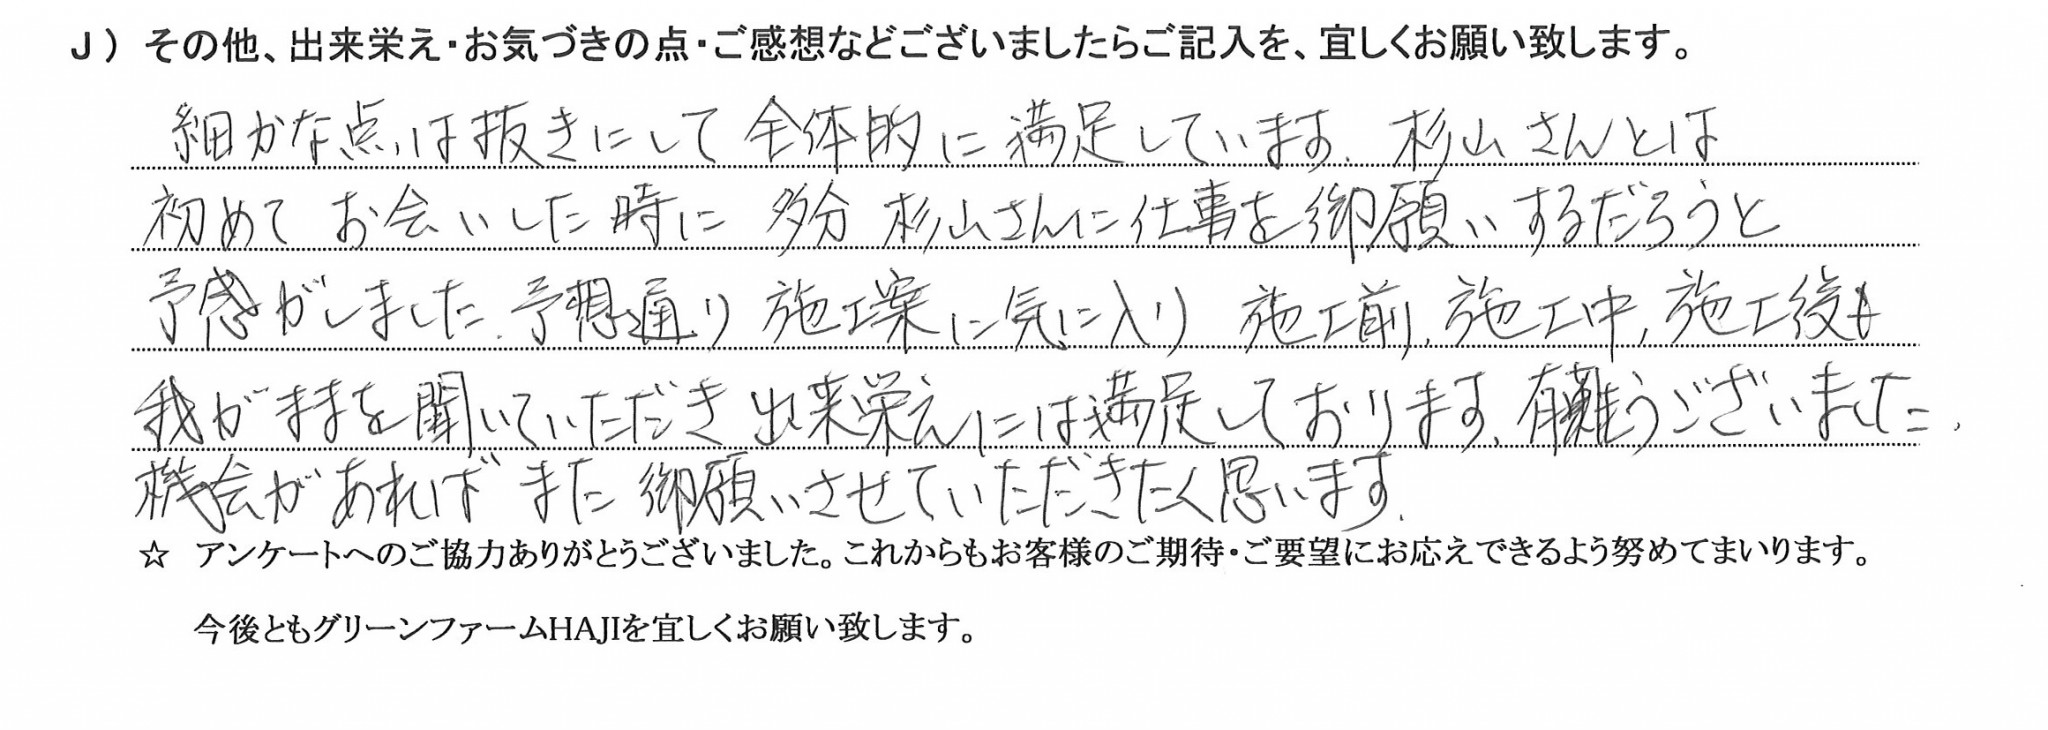 J） その他、出来栄え・お気づきの点・ご感想などございましたらご記入を、宜しくお願い致します。
細かな点は抜きにして全体的に満足しています。杉山さんとは
初めてお会いした時に多分杉山さんに仕事を御願いするだろうと
予感がしました。予想通り施工案に気に入り施工前、施工中、施工後も
我がままを聞いていただき出来栄えには満足しております。有難うございました。
機会があればまた御願いさせていただきたく思います。
☆ アンケートへのご協力ありがとうございました。これからもお客様のご期待・ご要望にお応えできるよう努めてまいります。
今後ともグリーンファームHAJIを宜しくお願い致します。